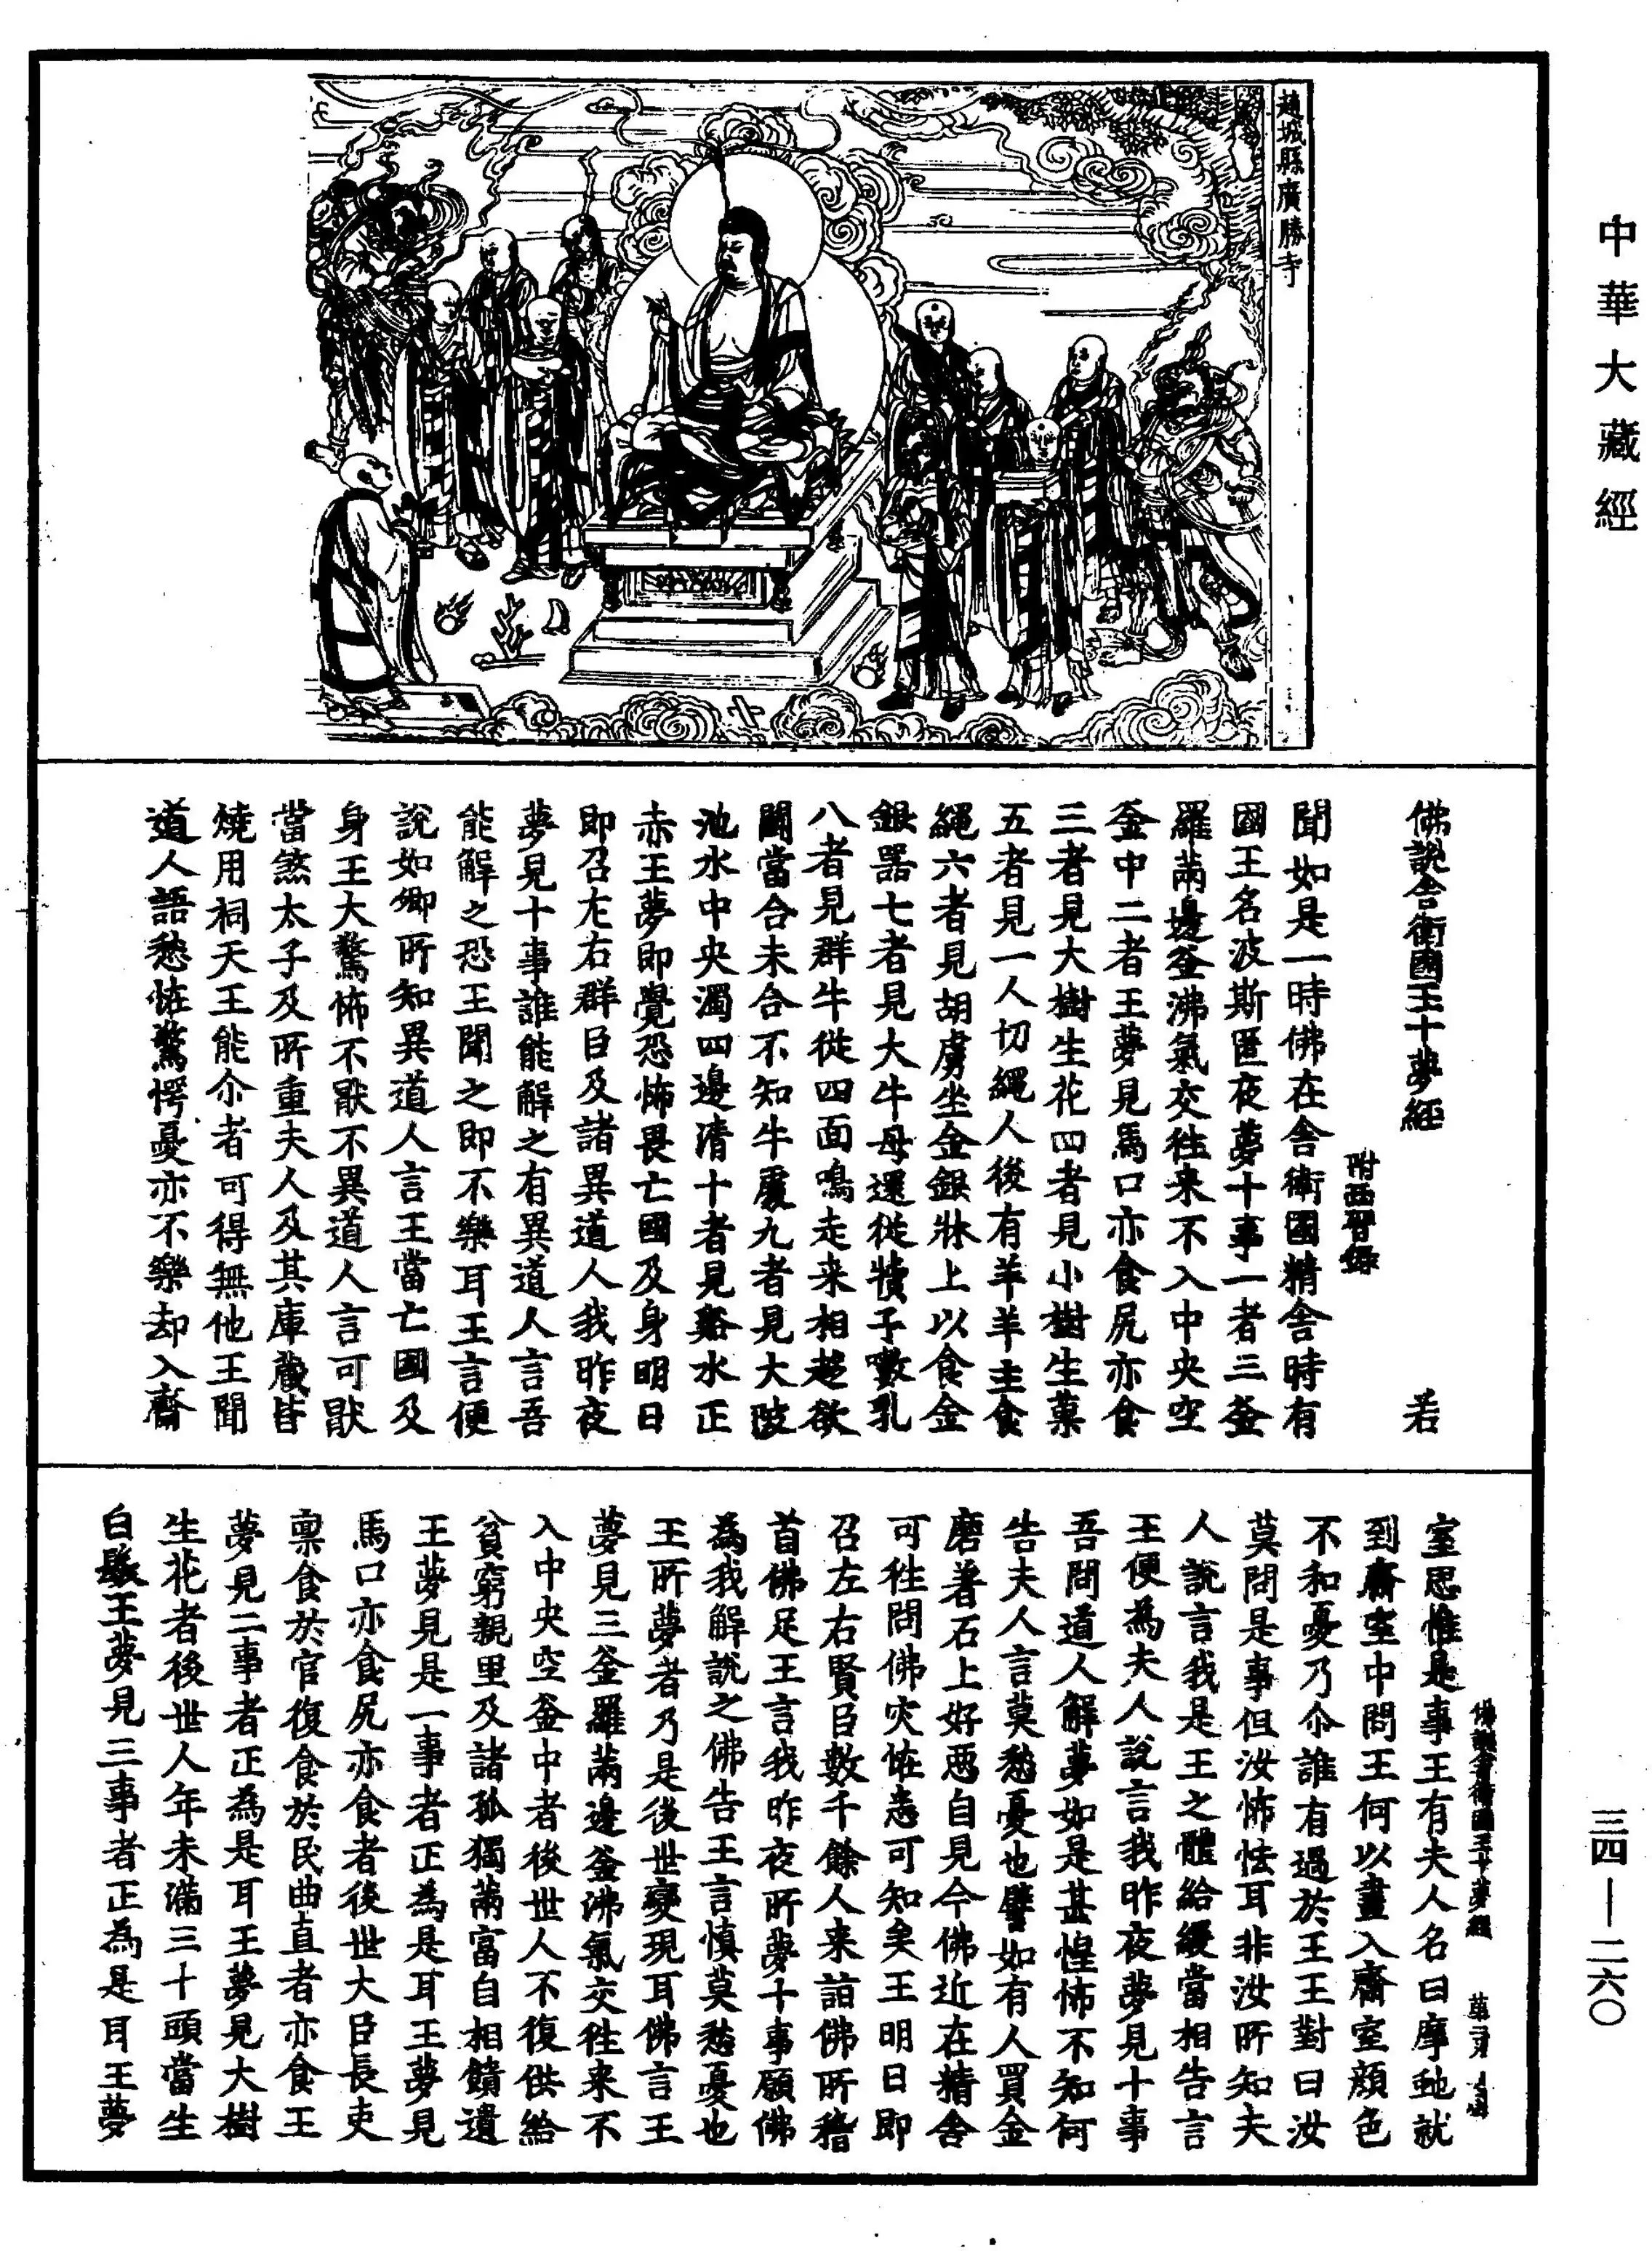 中華大藏經
三四—二六〇
趙城縣廣勝寺
佛說舍衛國王十夢經 若
附西晉錄
聞如是一時佛在舍衛國精舍時有
國王名波斯匿夜夢十事一者三釜
羅兩邊釜沸氣交往来不入中央空
釜中二者王夢見馬口亦食尻亦食
三者見大樹生花四者見小樹生菓
五者見一人切繩人後有羊羊主食
繩六者見胡虜坐金銀牀上以食金
銀器七者見大牛母還從犢子𠲿乳
八者見群牛從四面鳴走来相趁欲
鬪當合未合不知牛處九者見大陂
池水中央濁四邊清十者見谿水正
赤王夢即覺恐怖畏亡國及身明日
即召左右群臣及諸異道人我昨夜
夢見十事誰能解之有異道人言吾
能解之恐王聞之即不樂耳王言便
說如卿所知異道人言王當亡國及
身王大驚怖不猒不異道人言可猒
當煞太子及所重夫人及其庫藏皆
燒用祠天王能尒者可得無他王聞
道人語愁怪驚愕憂亦不樂却入齋
佛說舍衛國王十夢經 第二張
室思惟是事王有夫人名曰摩䖝就
到齋室中問王何以晝入齋室顔色
不和憂乃尒誰有過於王王對曰汝
莫問是事但汝怖怯耳非汝所知夫
人說言我是王之體給緩當相告言
王便為夫人說言我昨夜夢見十事
吾問道人解夢如是甚惶怖不知何
告夫人言莫愁憂也譬如有人買金
磨著石上好惡自見今佛近在精舍
可往問佛灾怪悉可知矣王明日即
召左右賢臣數千餘人来詣佛所稽
首佛足王言我昨夜所夢十事願佛
為我解說之佛告王言慎莫愁憂也
王所夢者乃是後世變現耳佛言王
夢見三釜羅兩邊釜沸氣交往来不
入中央空釜中者後世人不復供給
貧窮親里及諸孤獨兩富自相饋遺
王夢見是一事者正為是耳王夢見
馬口亦食尻亦食者後世大臣長吏
稟食於官復食於民曲直者亦食王
夢見二事者正為是耳王夢見大樹
生花者後世人年未滿三十頭當生
白髮王夢見三事者正為是耳王夢